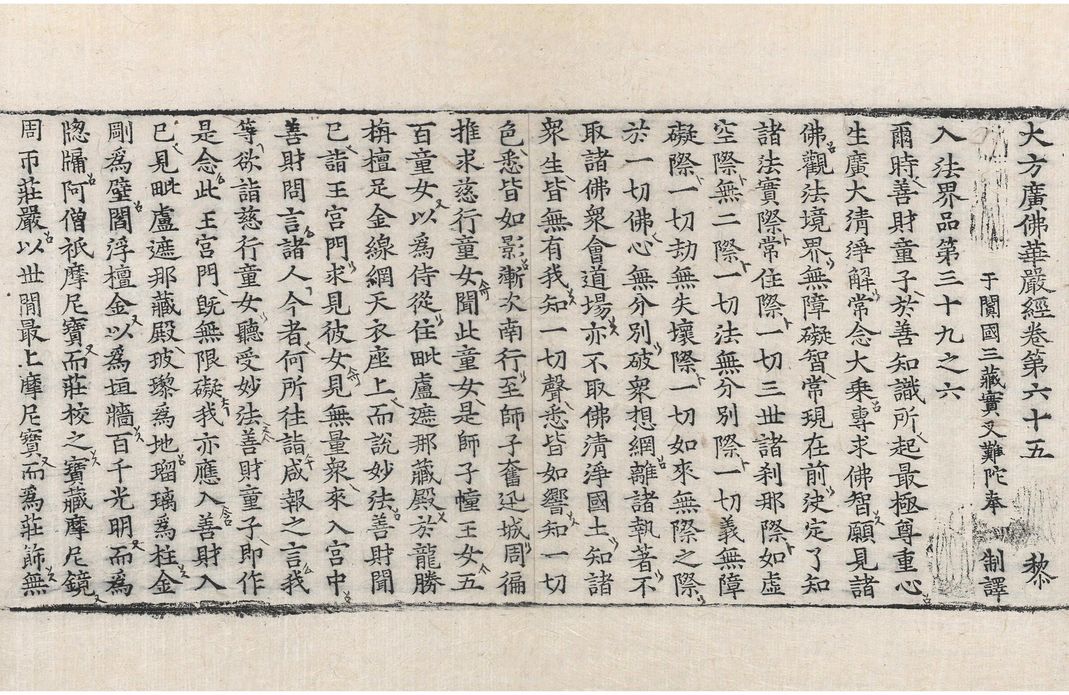 大方廣佛華嚴經卷第六十五 黎
于闐國三藏實叉難陀奉 制譯
入法界品第三十九之六
爾時善財童子於善知識所起最極尊重心
生廣大清淨解常念大乘專求佛智願見諸
佛觀法境界無障礙智常現在前決定了知
諸法實際常住際一切三世諸刹那際如虛
空際無二際一切法無分別際一切義無障
礙際一切劫無失壞際一切如來無際之際
於一切佛心無分別破衆想網離諸執著不
取諸佛衆會道場亦不取佛清淨國土知諸
衆生皆無有我知一切聲悉皆如響知一切
色悉皆如影漸次南行至師子奮迅城周徧
推求慈行童女聞此童女是師子幢王女五
百童女以爲侍從住毗盧遮那藏殿於龍勝
栴檀足金線網天衣座上而說妙法善財聞
已詣王宮門求見彼女見無量衆來入宮中
善財問言諸人今者何所往詣咸報之言我
等欲詣慈行童女聽受妙法善財童子即作
是念此王宮門旣無限礙我亦應入善財入
已見毗盧遮那藏殿玻瓈爲地瑠璃爲柱金
剛爲壁閻浮檀金以爲垣牆百千光明而爲
牎牖阿僧祇摩尼寶而莊校之寶藏摩尼鏡
周帀莊嚴以世間最上摩尼寶而爲莊飾無